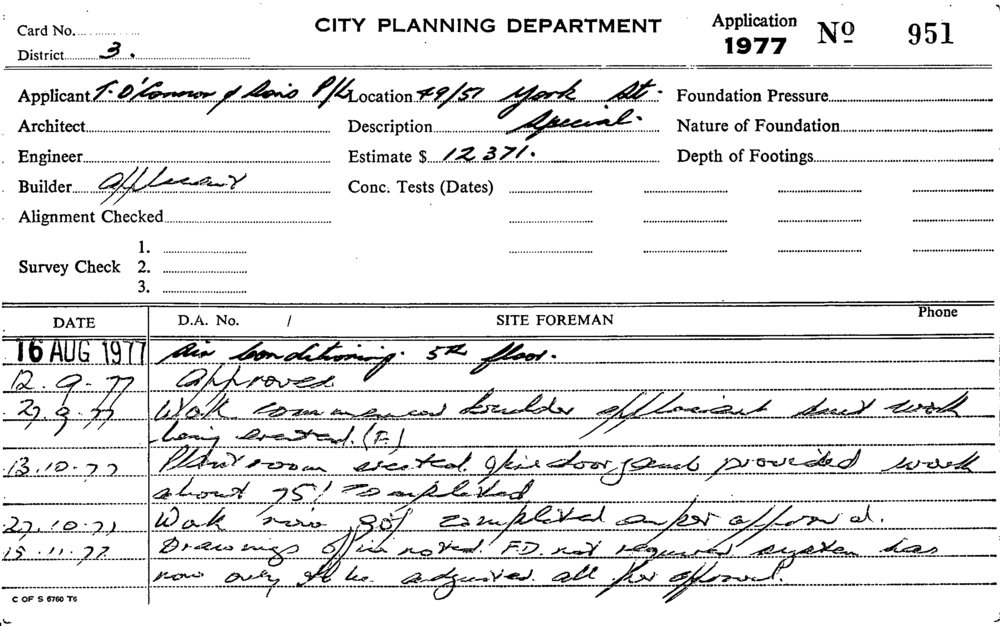 CITY PLANNING DEPARTMENT
Card No.
Application 1977 Nº 951
District 3.
Applicant T. O'Connor & Sons P/L Location 49/51 York St. Foundation Pressure
Architect Description Special. Nature of Foundation
Engineer Estimate $ 12 371. Depth of Footings
Builder applicant Conc. Tests (Dates)
Alignment Checked
1.
Survey Check 2.
3.
DATE D.A. No. / SITE FOREMAN Phone
16 AUG 1977 Air Conditioning. 5th floor.
12.9.77 Approved
27.9.77 Work commenced builder applicant duct work
being erected. (F.)
13.10.77 Plant room erected. fire door, provided work
about 75% completed
27.10.77 Work now 90% completed as per approval.
15.11.77 Drawings noted. F.D. not required system has
now only to be adjusted. all per approval.
C OF S 6760 T6